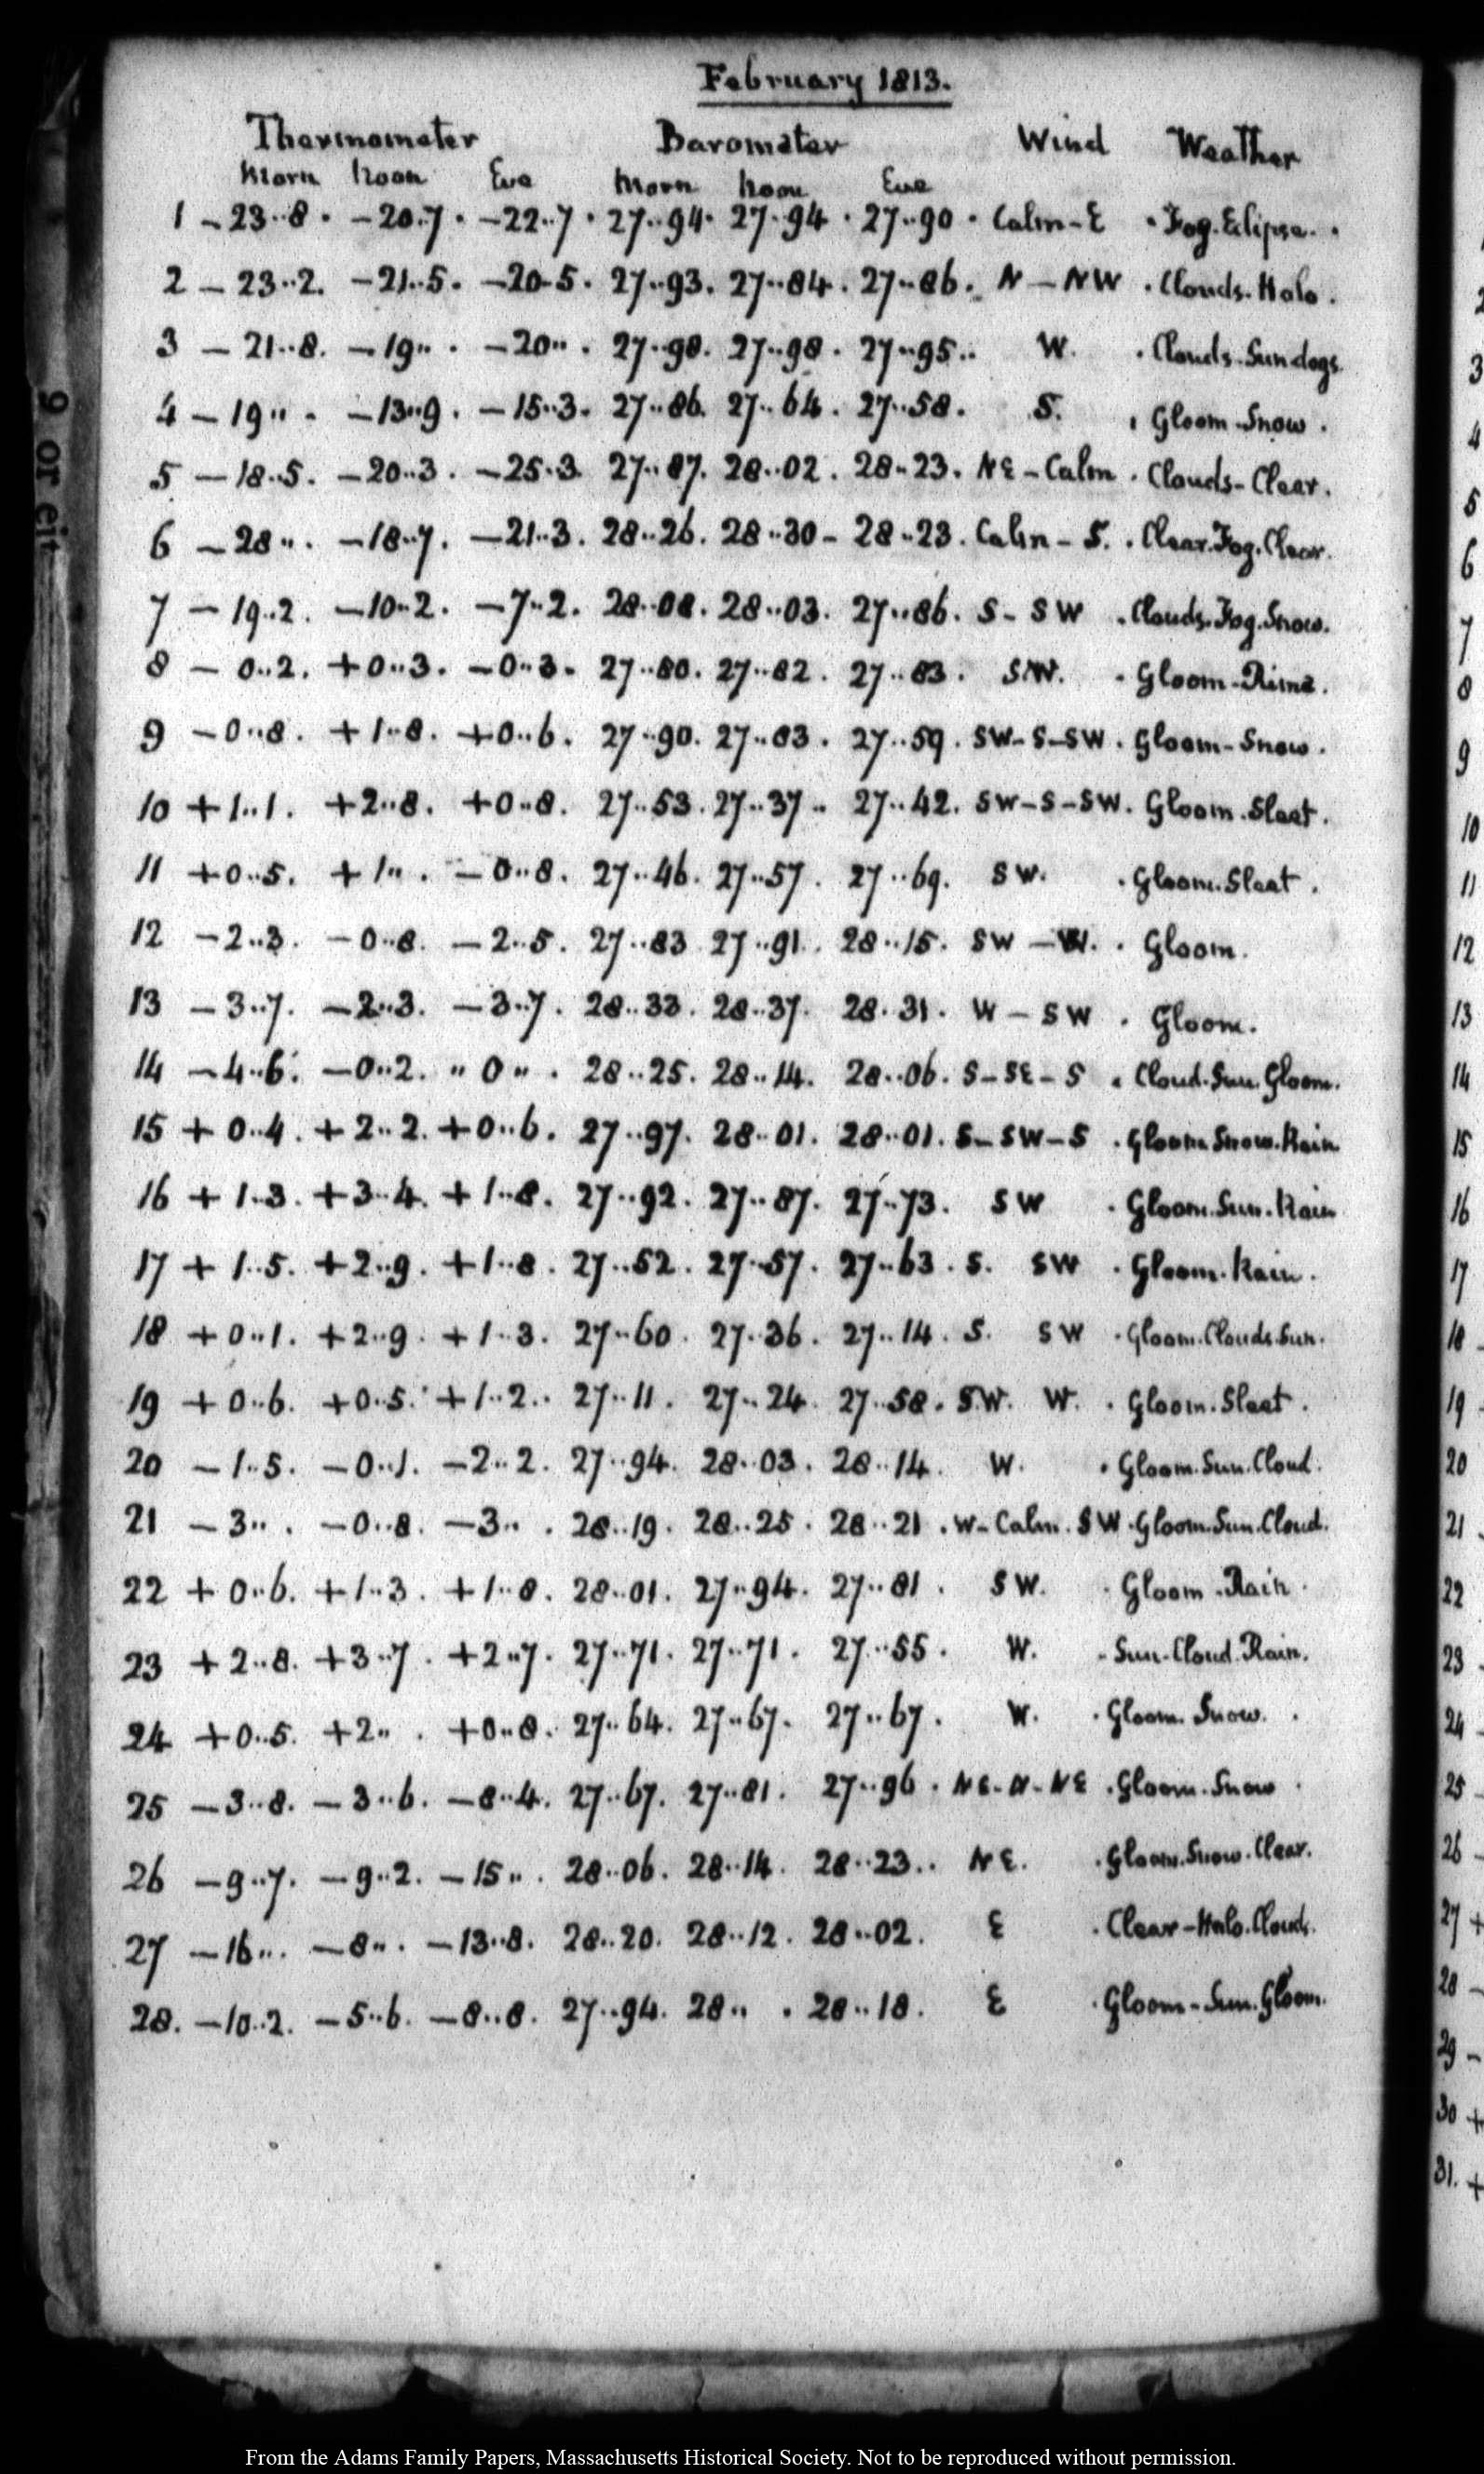 February 1813.
Thermometer Barometer Wind Weather
Morn Noon Eve Morn Noon Eve
1 -23..8. -20..7. -22..7. 27..94. 27..94. 27..90. Calm-E . Fog. Eclipse..
2 -23..2. -21..5. -20-5. 27..93. 27..84. 27..86. N-NW . Clouds. Halo.
3 -21..8. -19.. . -20.. . 27..98. 27..98. 27..95.. W. . Clouds. Sundogs.
4 -19.. . -13..9. -15..3. 27..86. 27..64. 27..58. S. . Gloom. Snow.
5 -18..5. -20..3. -25..3. 27..87. 28..02. 28..23. NE-Calm . Clouds-Clear.
6 -28.. . -18..7. -21..3. 28..26. 28..30- 28..23. Calm-S. . Clear. Fog. Clear.
7 -19..2. -10..2. -7..2. 28..08. 28..03. 27..86. S-SW . Clouds. Fog. Snow.
8 -0..2. +0..3. -0..3. 27..80. 27..82. 27..83. SW. . Gloom-Rime.
9 -0..8. +1..8. +0..6. 27..90. 27..83. 27..59. SW-S-SW. Gloom-Snow.
10 +1..1. +2..8. +0..8. 27..53. 27..37.. 27..42. SW-S-SW. Gloom. Sleet.
11 +0..5. +1.. . -0..8. 27..46. 27..57. 27..69. SW. . Gloom. Sleet.
12 -2..3. -0..8. -2..5. 27..83 27..91. 28..15. SW-W. . Gloom.
13 -3..7. -2..3. -3..7. 28..33. 28..37. 28..31. W-SW . Gloom.
14 -4..6. -0..2. "0" . 28..25. 28..14. 28..06. S-SE-S . Cloud. Sun. Gloom.
15 +0..4. +2..2. +0..6. 27..97. 28..01. 28..01. S-SW-S . Gloom Snow. Rain
16 +1..3. +3..4. +1..8. 27..92. 27..87. 27..73. SW . Gloom. Sun. Rain
17 +1..5. +2..9. +1..8. 27..52. 27..57. 27..63. S. SW . Gloom. Rain.
18 +0..1. +2..9. +1..3. 27..60. 27..36. 27..14. S. SW . Gloom. Clouds. Sun.
19 +0..6. +0..5. +1..2.. 27..11. 27..24. 27..58. S.W. W. . Gloom. Sleet.
20 -1..5. -0..1. -2..2. 27..94. 28..03. 28..14. W. . Gloom. Sun. Cloud.
21 -3.. . -0..8. -3.. . 28..19. 28..25. 28..21. W-Calm. SW. Gloom. Sun. Cloud.
22 +0..6. +1..3. +1..8. 28..01. 27..94. 27..81. SW. . Gloom. Rain.
23 +2..8. +3..7. +2..7. 27..71. 27..71. 27..55. W. . Sun-Cloud. Rain.
24 +0..5. +2.. . +0..8. 27..64. 27..67. 27..67. W. . Gloom. Snow. .
25 -3..8. -3..6. -8..4. 27..67. 27..81. 27..96. NE-N-NE . Gloom. Snow .
26 -9..7. -9..2. -15.. . 28..06. 28..14. 28..23.. NE. . Gloom. Snow. Clear.
27 -16.. . -8.. . -13..8. 28..20. 28..12. 28..02. E . Clear-Halo. Clouds.
28. -10..2. -5..6. -8..8. 27..94. 28.. . 28..18. E . Gloom-Sun. Gloom.
From the Adams Family Papers, Massachusetts Historical Society. Not to be reproduced without permission.